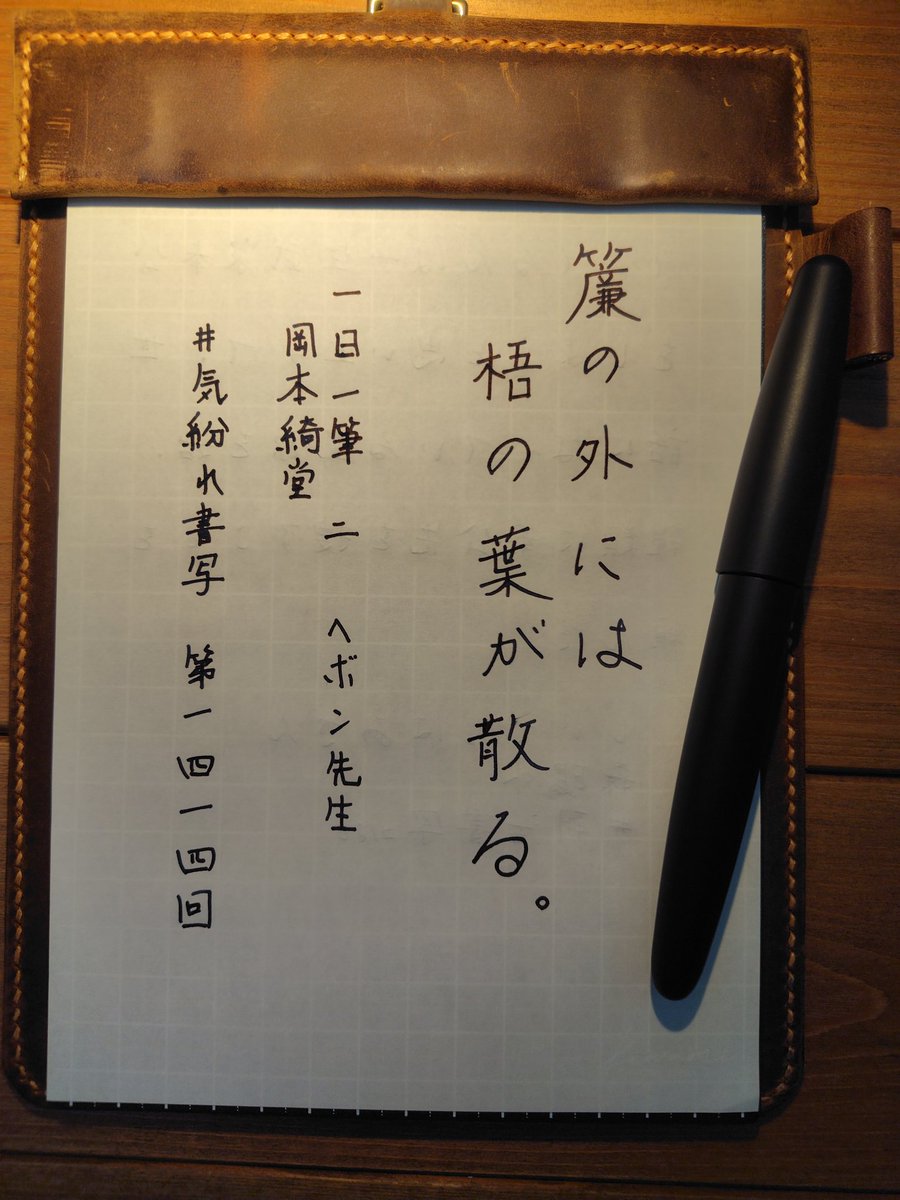 簾の外には
梧の葉が散る。
一日一筆 二 ヘボン先生
岡本綺堂
#気紛れ書写 第一四一四回